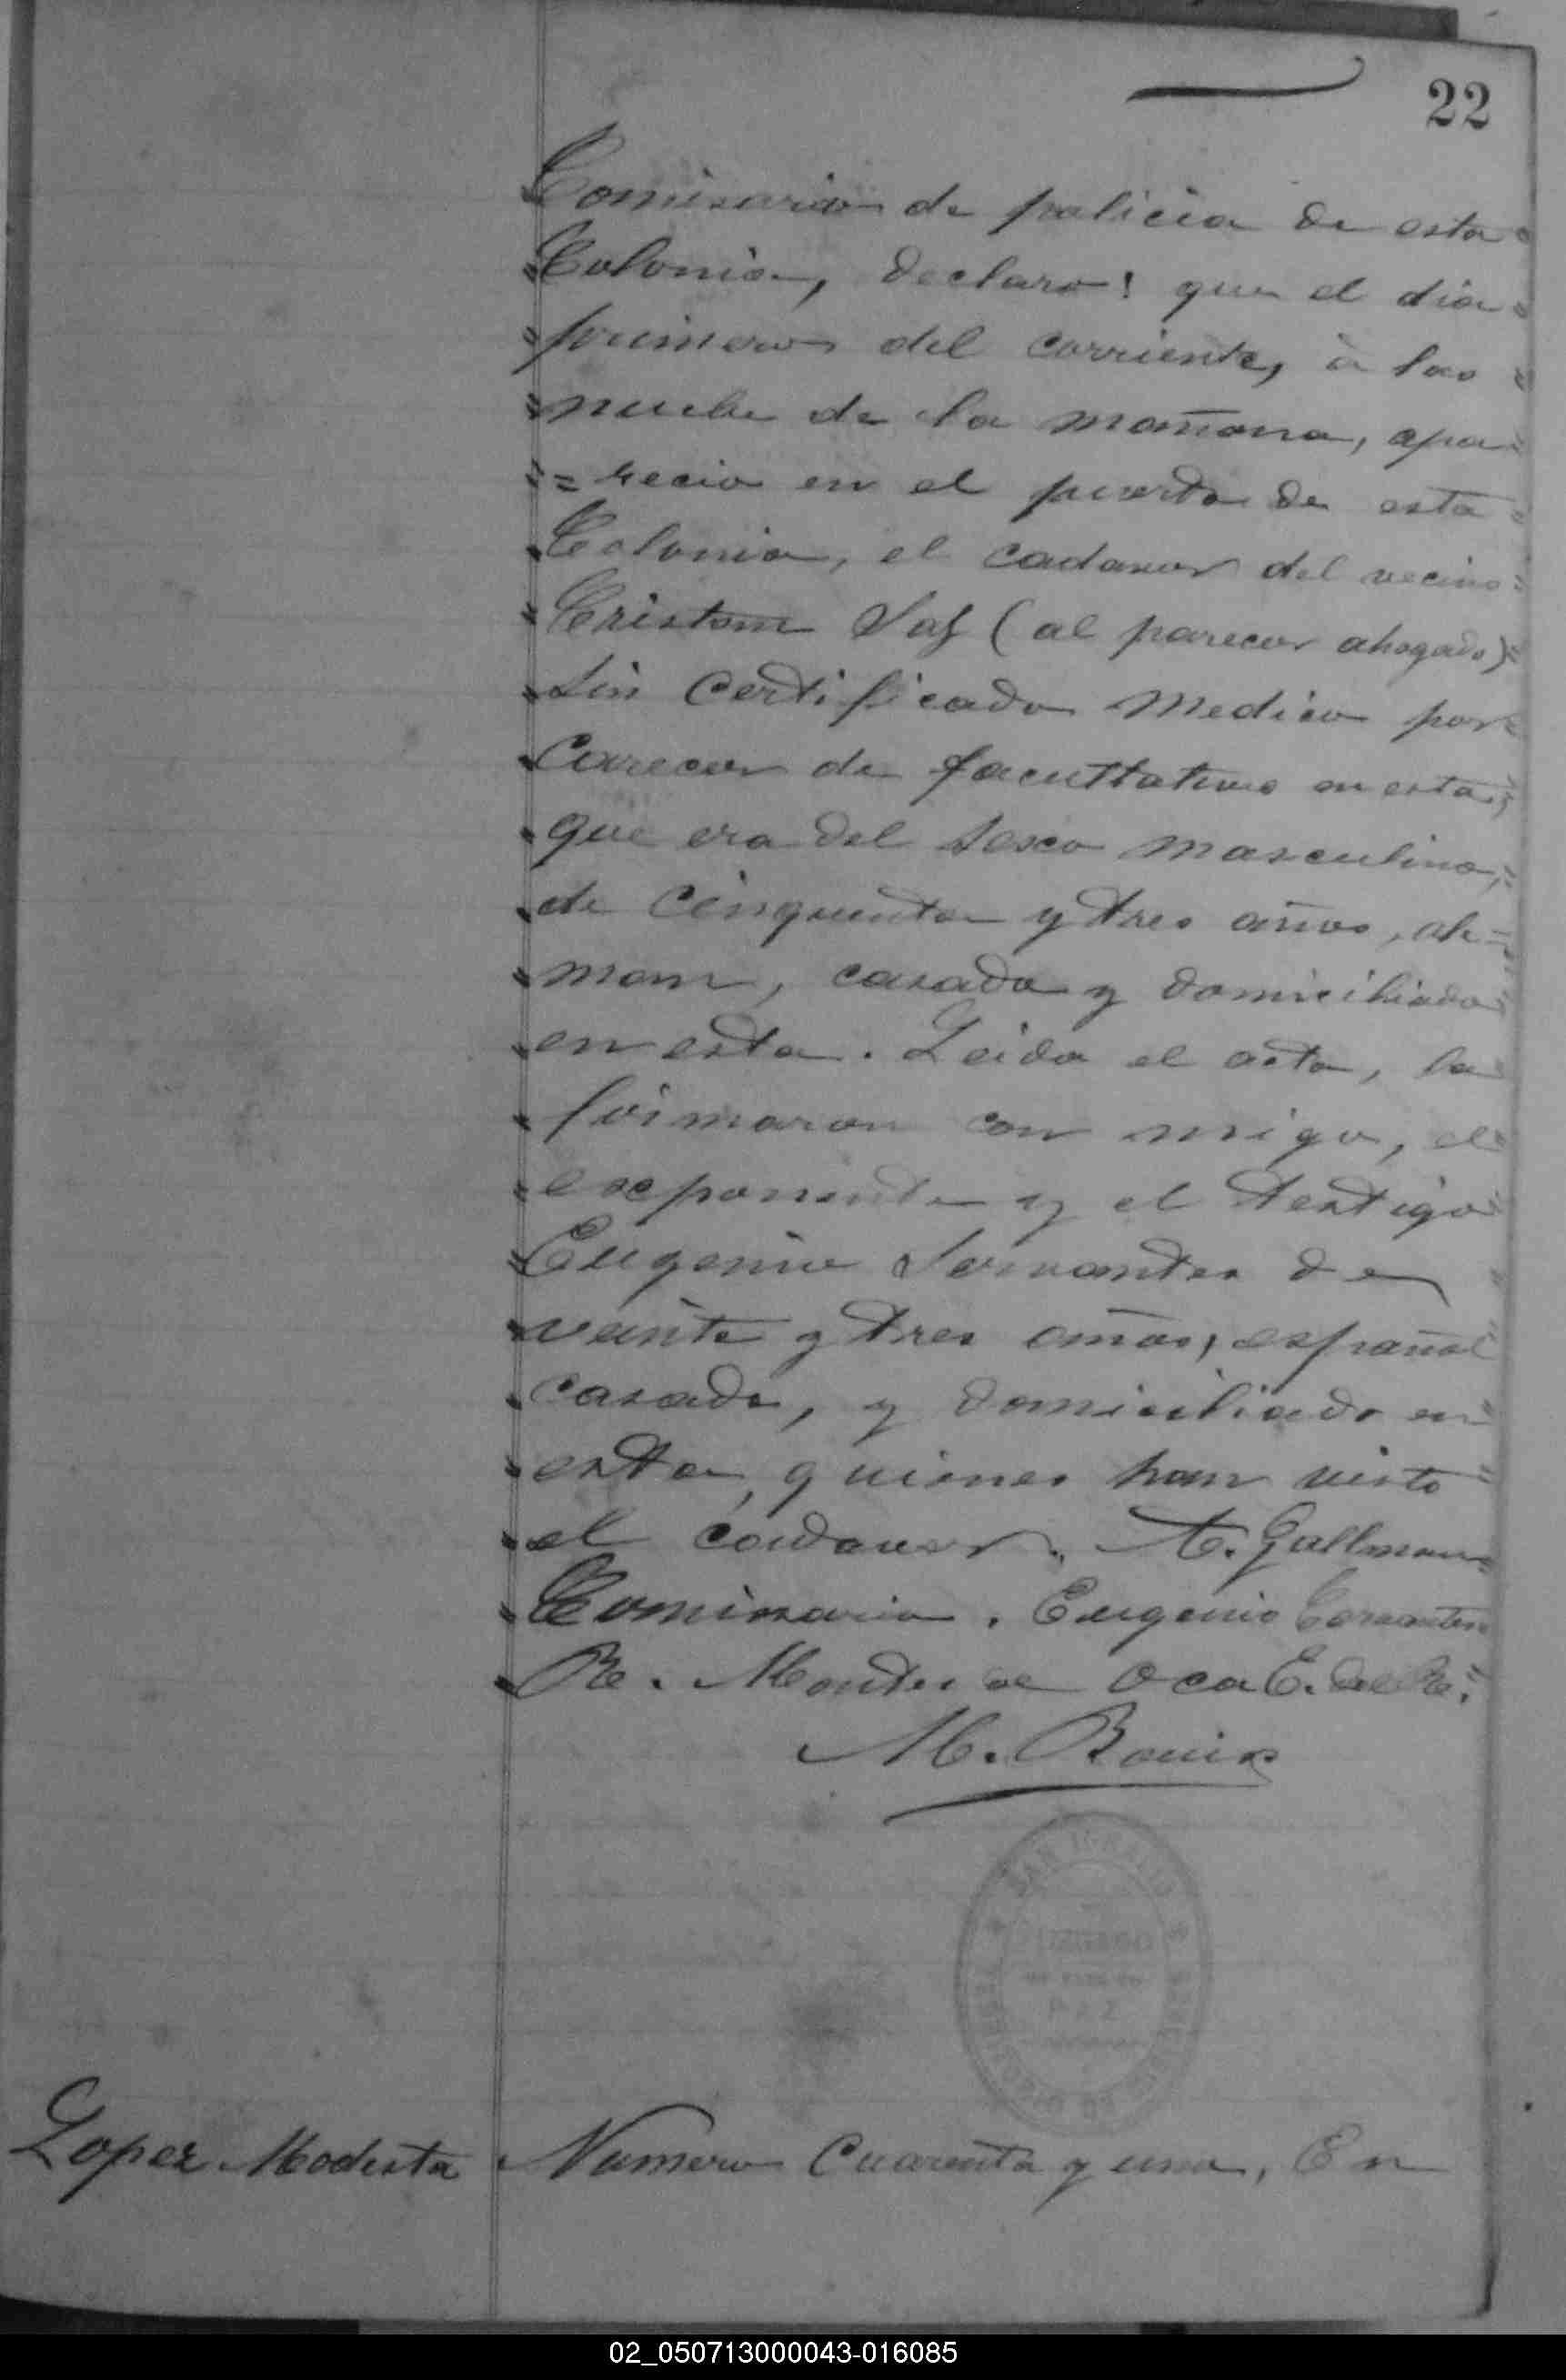 22
Comisario de policia de esta
Colonia, declaro: que el dia
primero del corriente, à las
nuebe de la mañana, apa
= recio en el puerto de esta
Colonia, el cadaver del vecino
(al parecer ahogado)
sin certificado medico por
carecer de facultativo en esta,
que era del sexo masculino,
de cinquenta y tres años, ale=
man, casado y domiciliado
en esta. Leida el acta, la
firmaron con migo, el
exponente y el testigo
Eugenio Servantes de
veinte y tres años, español
casado, y domiciliado en
esta, quienes han visto
el cadaver. A. Gallman
Comisario. Eugenio Cervantes
R. Montes de Oca E. del R.
M.
SAN IGNACIO
JUZGADO
PAZ
Lopez Modesta Numero Cuarenta y uno, En
02_050713000043-016085